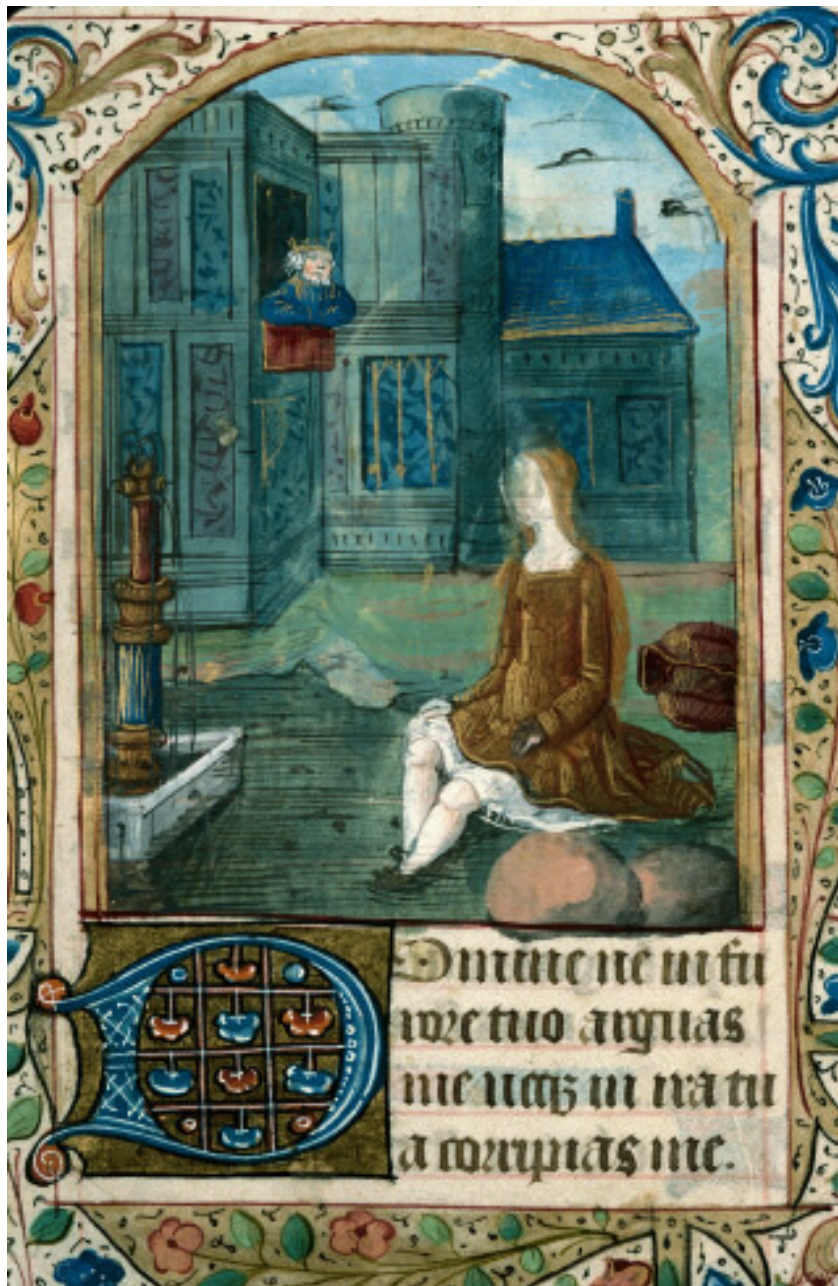 Domine ne in fu
rore tuo arguas
me neqꝫ in ira tu
a corripias me.